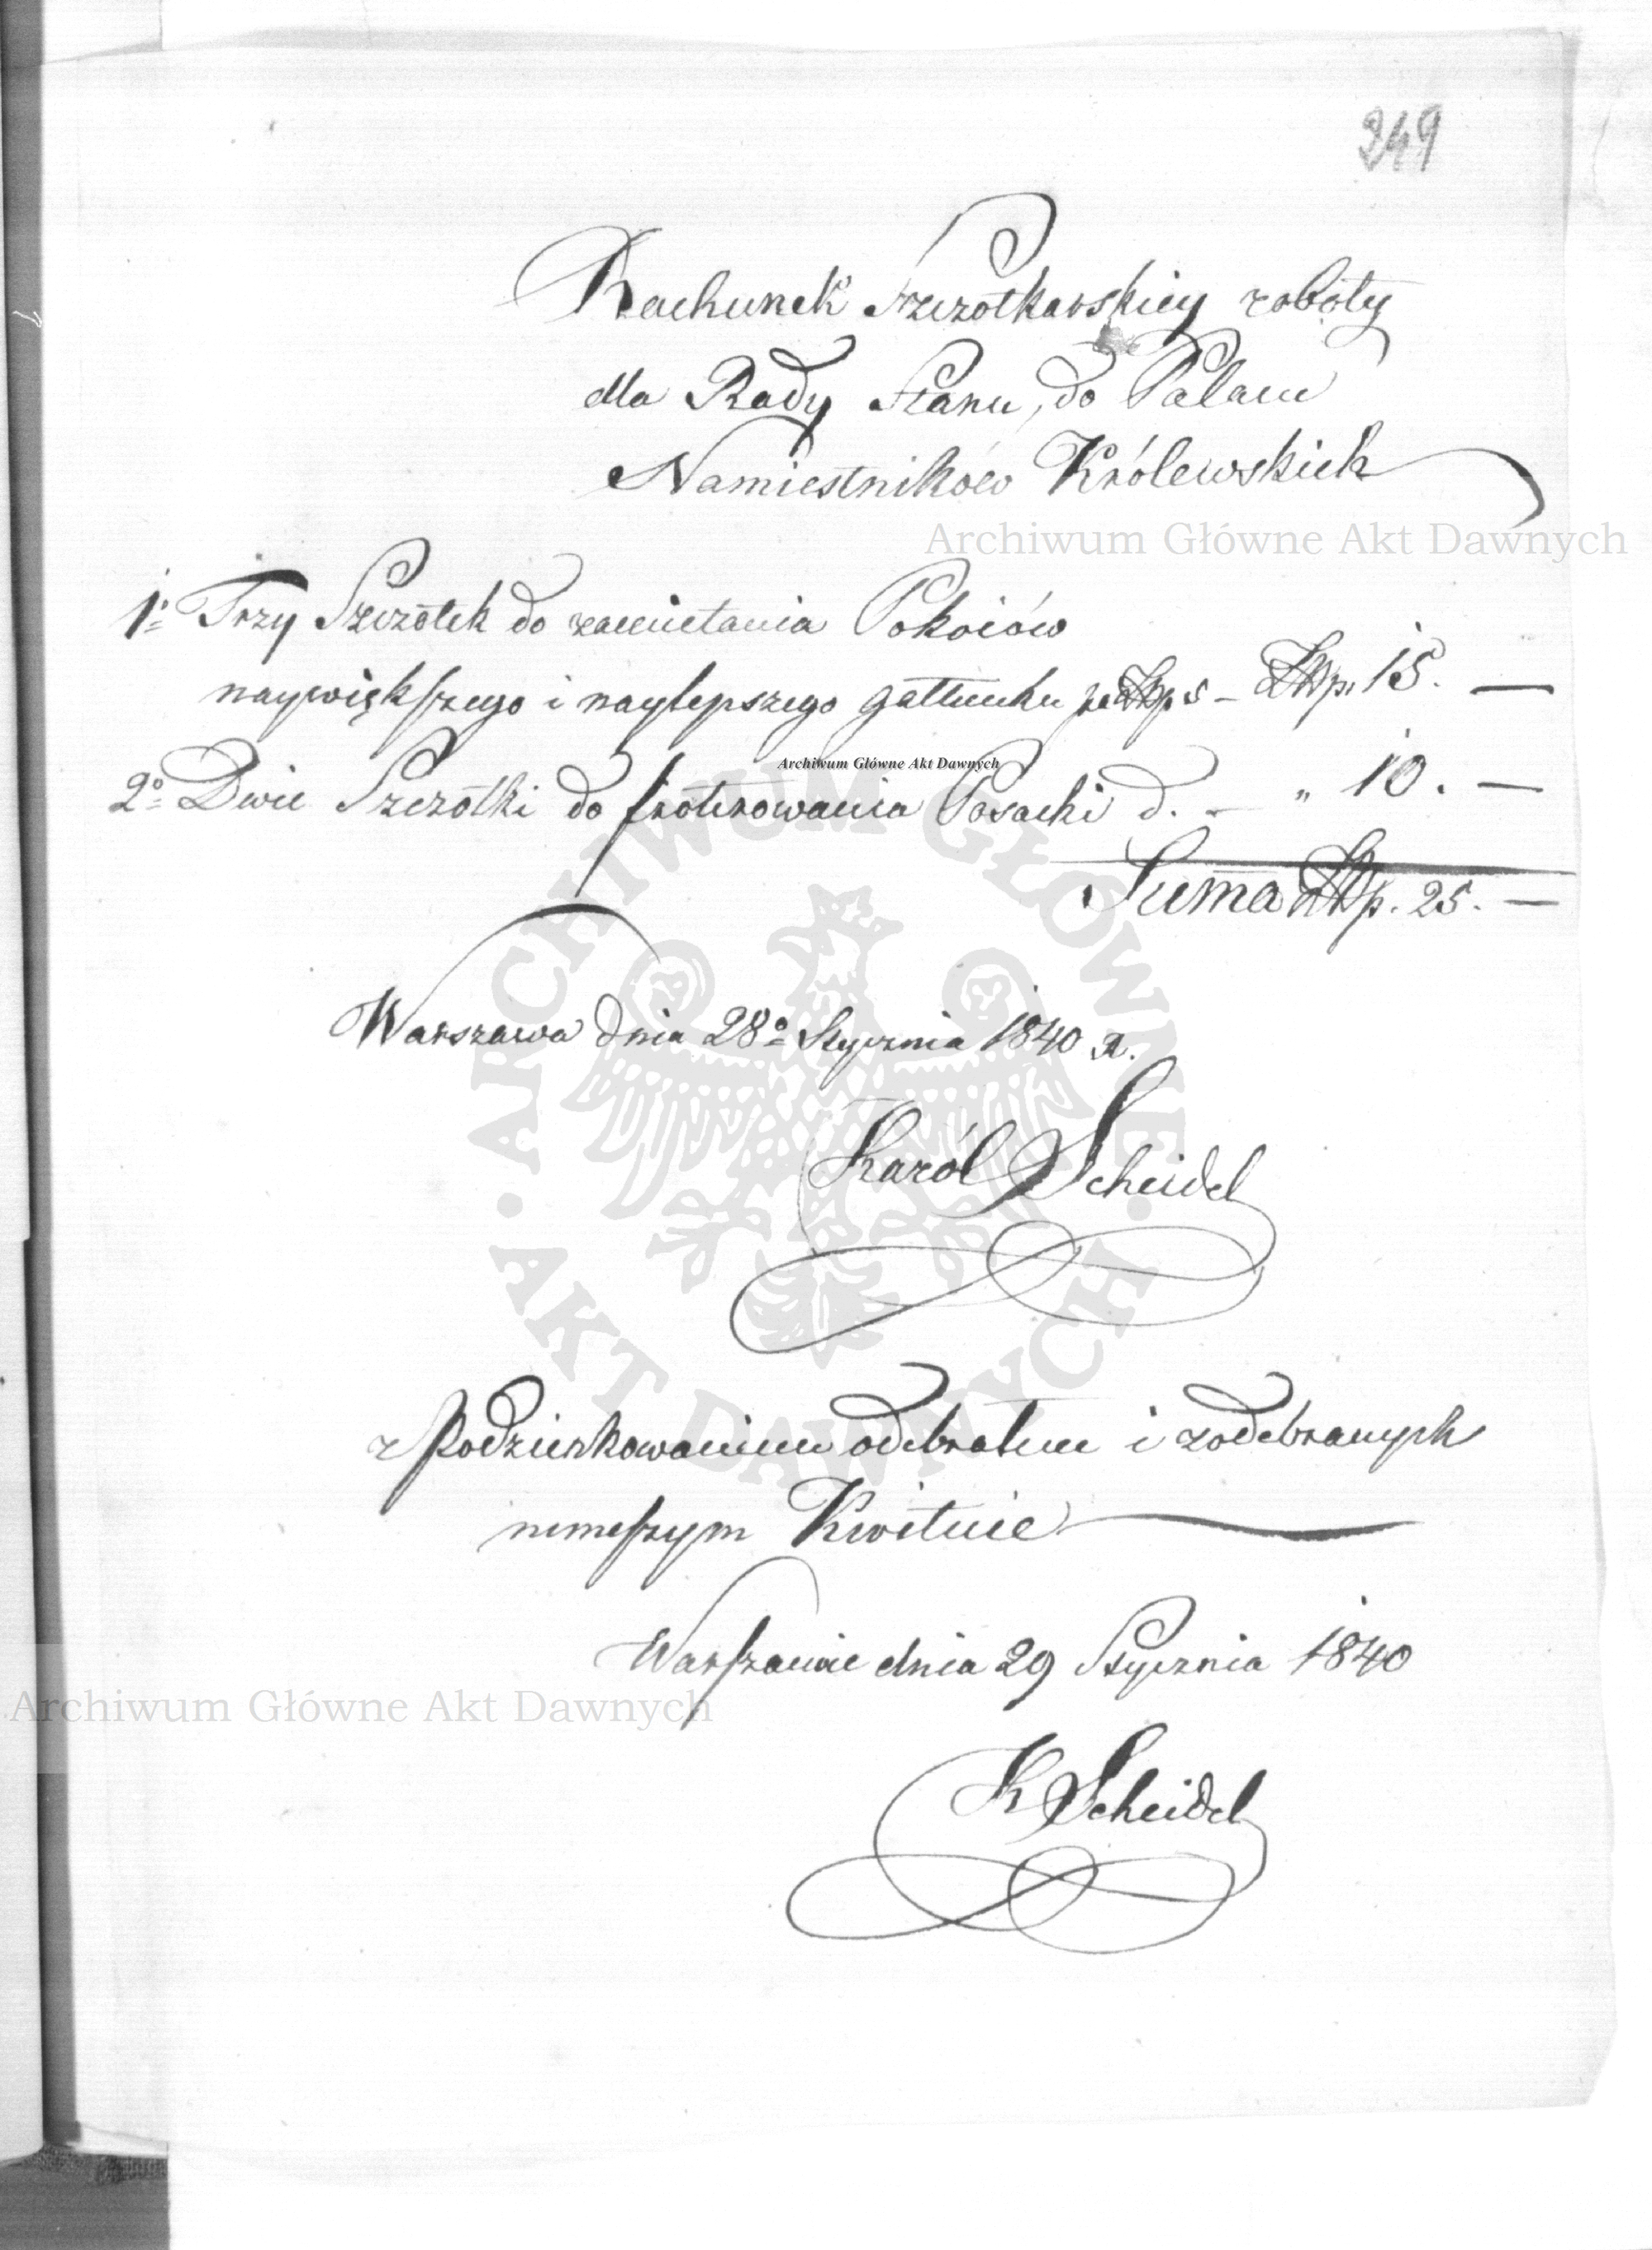 249
Rachunek Szczotkarskiey roboty
dla Rady Stanu, do Palacu
Namiestników Królewskich
Archiwum Główne Akt Dawnych
1º Trzy Szczotek do zamietania Pokoiów
naywiękſzego i naylepszego gattunku po Złp 5 – Złp. 15. —
Archiwum Główne Akt Dawnych
2º Dwie Szczotki do froterowania Posacki d. – " 10. —
Suma Złp. 25. —
ARCHIWUM GŁÓWNE AKT DAWNYCH
Warszawa dnia 28º Stycznia 1840 R.
Karól Scheidel
z Podzienkowaniem odebrałem i zodebranych
nineſzym Kwituie
Warſzawie dnia 29 Stycznia 1840
Archiwum Główne Akt Dawnych
K Scheidel